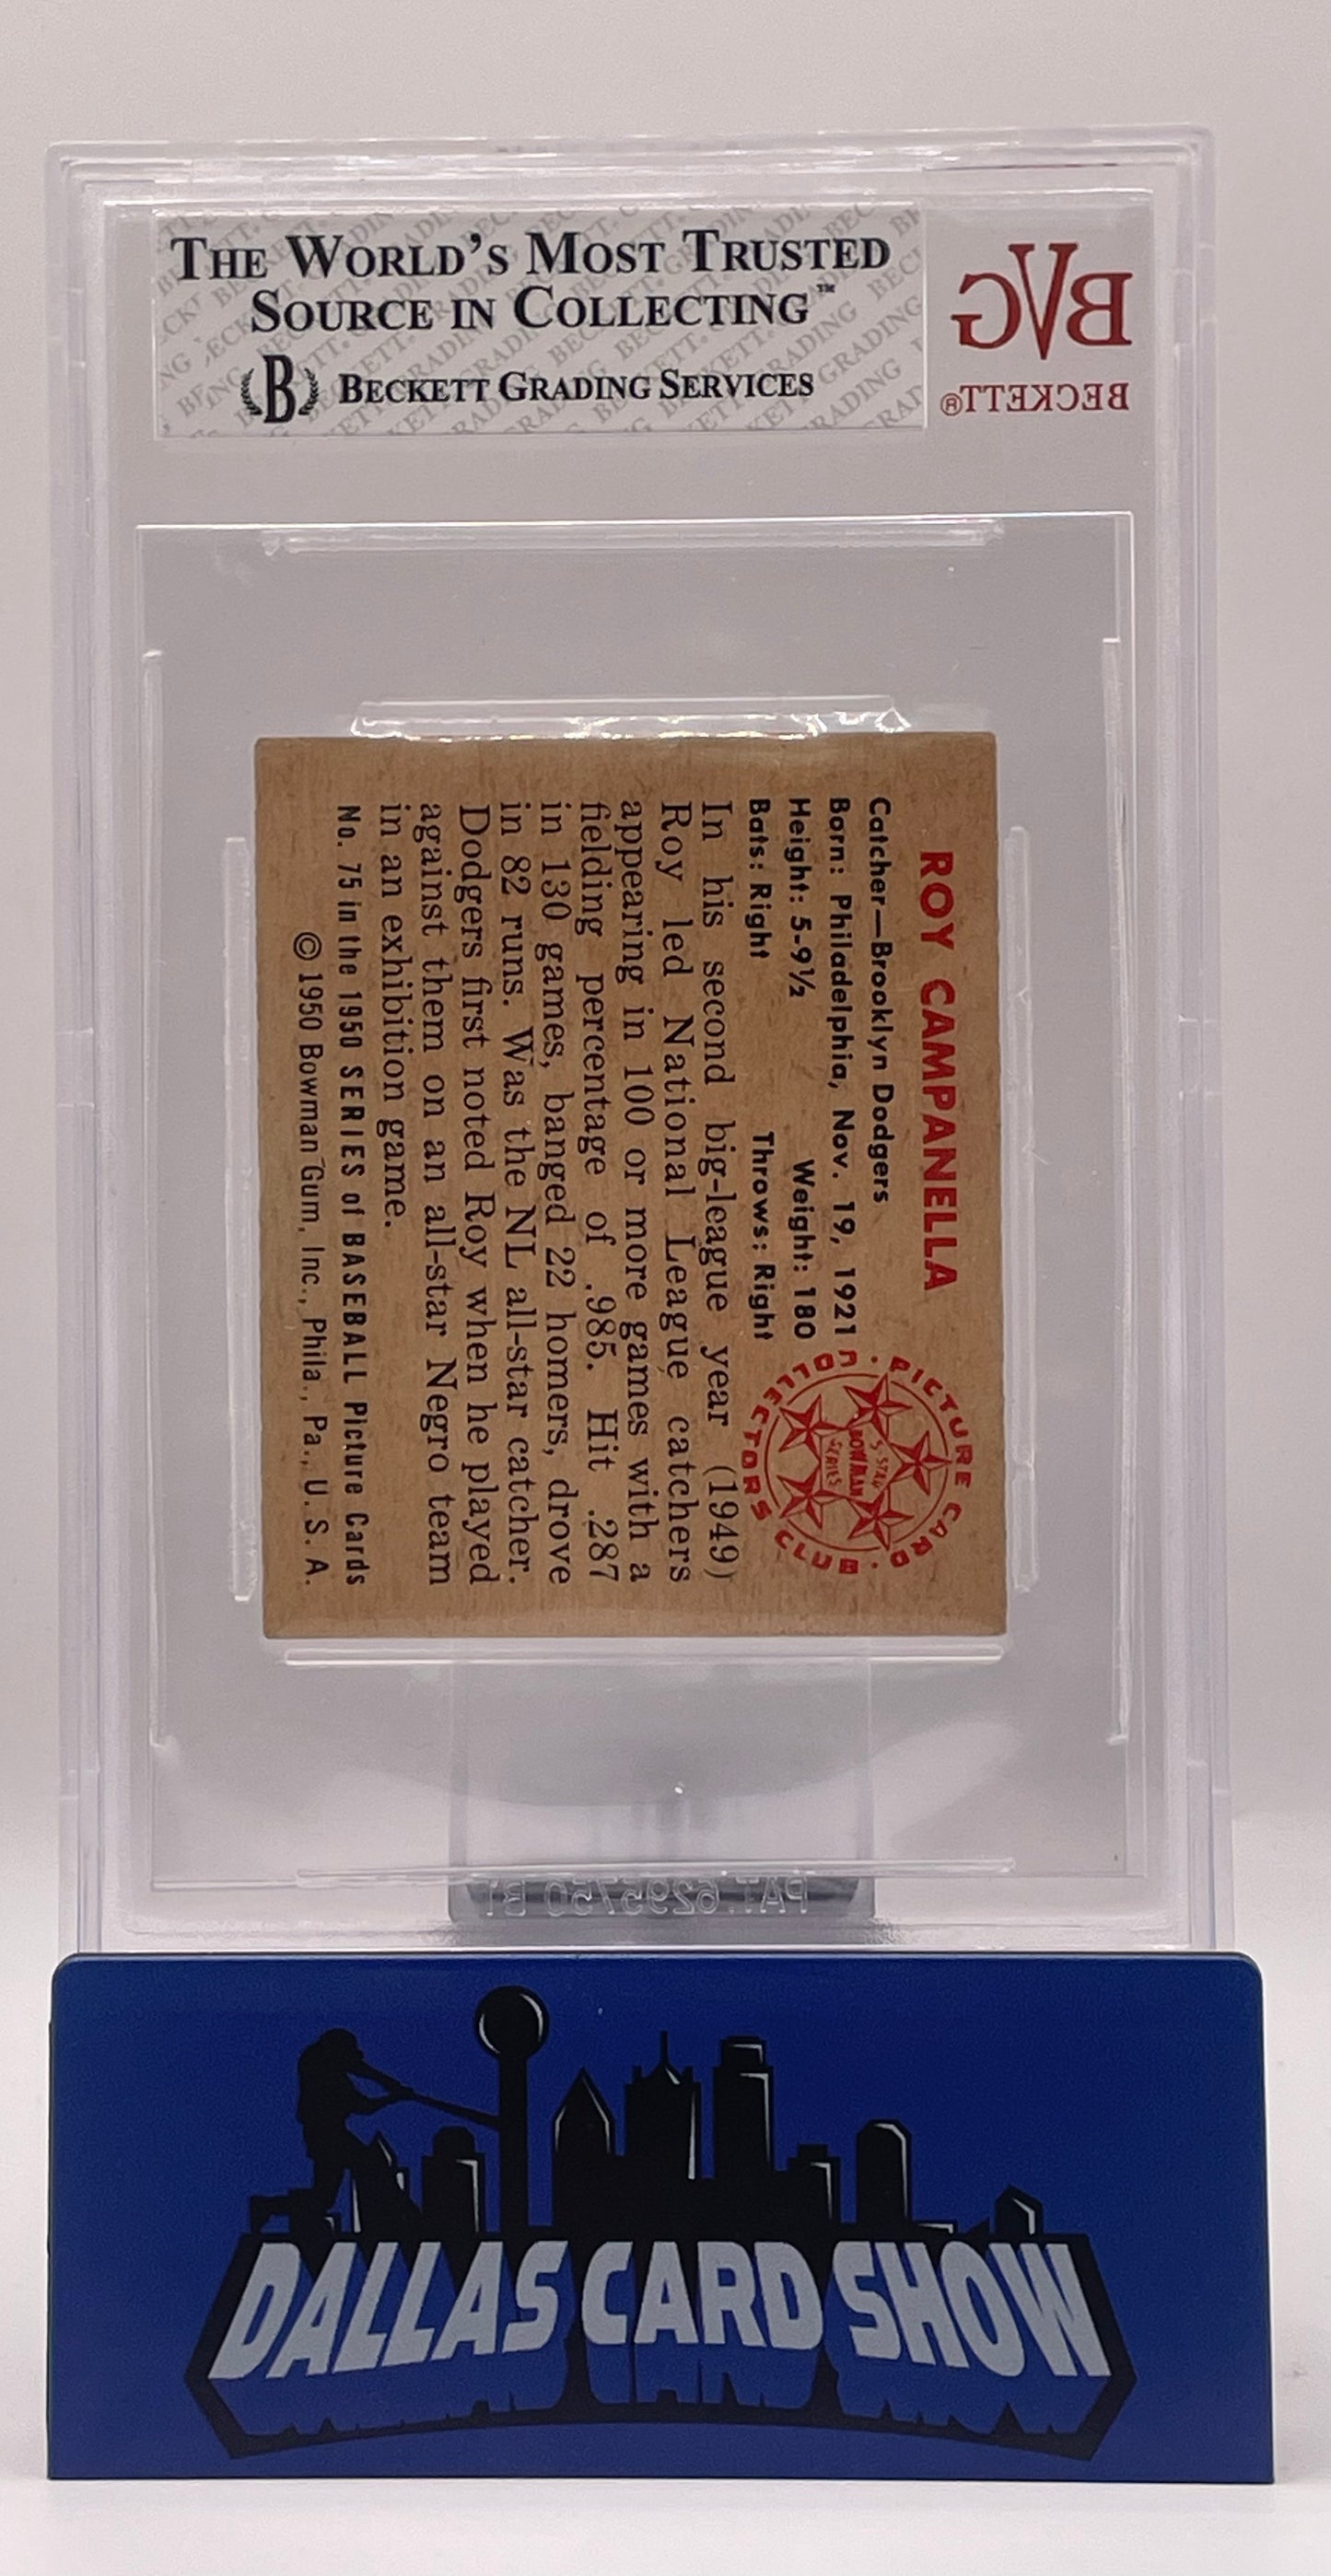 THE WORLD'S MOST TRUSTED
SOURCE IN COLLECTING™
B BECKETT GRADING SERVICES
BVG
BECKETT®
ROY CAMPANELLA
Catcher—Brooklyn Dodgers
Born: Philadelphia, Nov. 19, 1921
Height: 5-9½ Weight: 180
Bats: Right Throws: Right
PICTURE CARD COLLECTORS CLUB
5-STAR
BOWMAN
SERIES
In his second big-league year (1949)
Roy led National League catchers
appearing in 100 or more games with a
fielding percentage of .985. Hit .287
in 130 games, banged 22 homers, drove
in 82 runs. Was the NL all-star catcher.
Dodgers first noted Roy when he played
against them on an all-star Negro team
in an exhibition game.
No. 75 in the 1950 SERIES of BASEBALL Picture Cards
© 1950 Bowman Gum, Inc., Phila., Pa., U. S. A.
PAT. 6295750 B1
DALLAS CARD SHOW